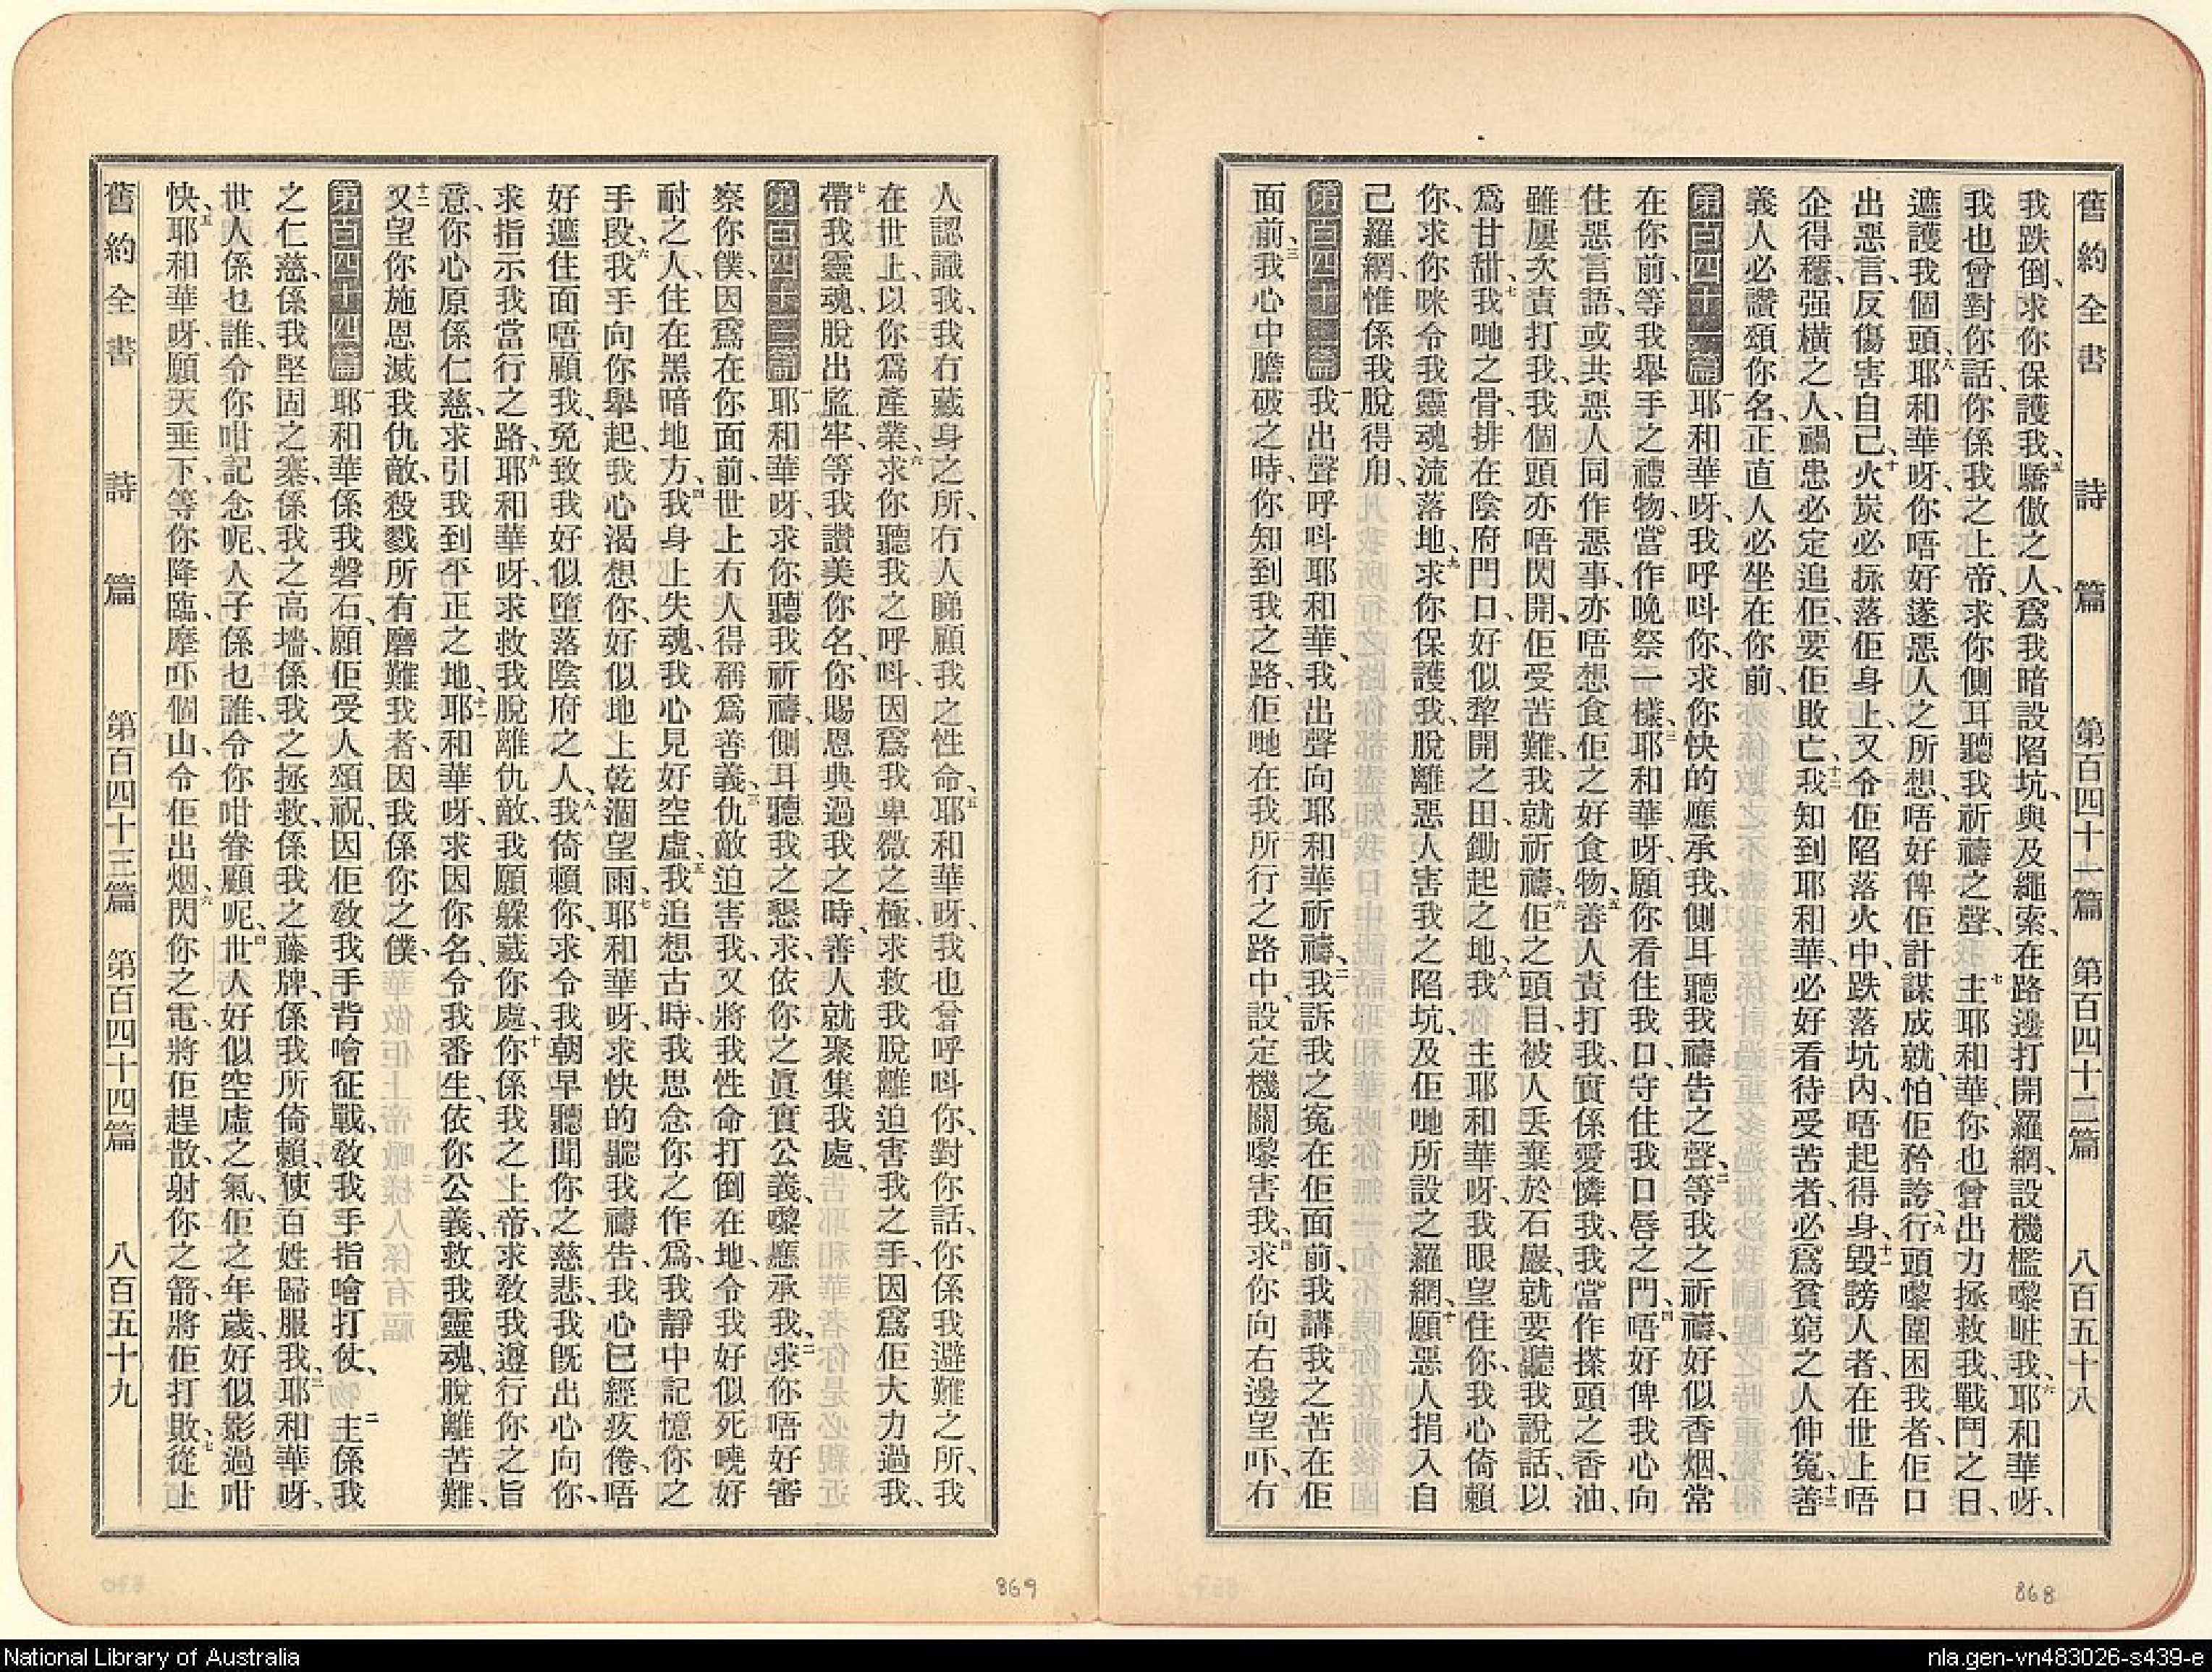 舊約全書 詩篇 第百四十一篇 第百四十二篇 八百五十八
我跌倒、求你保護我、五驕傲之人、爲我暗設陷坑、與及繩索、在路邊打開羅網、設機檻嚟𠱁我、六耶和華呀、
我也曾對你話、你係我之上帝、求你側耳聽我祈禱之聲、七主耶和華、你也曾出力拯救我、戰鬥之日、
遮護我個頭、八耶和華呀、你唔好遂惡人之所想、唔好俾佢計謀成就、怕佢矜誇、九行頭嚟圍困我者、佢口
出惡言、反傷害自己、十火炭必拯落佢身上、又令佢陷落火中、跌落坑內、唔起得身、十一毀謗人者、在世上唔
企得穩、强橫之人、禍患必定追佢、要佢敗亡、十二我知到耶和華、必好看待受苦者、必爲貧窮之人伸冤、十三善
義人必讚頌你名、正直人必坐在你前、
第百四十一篇 一耶和華呀、我呼呌你、求你快的應承我、側耳聽我禱告之聲、二等我之祈禱、好似香烟、常
在你前、等我舉手之禮物、當作晚祭一樣、三耶和華呀、願你看住我口、守住我口唇之門、四唔好俾我心向
住惡言語、或共惡人同作惡事、亦唔想食佢之好食物、五善人責打我、實係愛憐我、我當作搽頭之香油、
雖屢次責打我、我個頭亦唔閃開、佢受苦難、我就祈禱、六佢之頭目、被人丟棄於石巖、就要聽我說話、以
爲甘甜、七我哋之骨、排在陰府門口、好似犂開之田、鋤起之地、八我主耶和華呀、我眼望住你、我心倚賴
你、求你咪令我靈魂流落地、九求你保護我、脫離惡人害我之陷坑、及佢哋所設之羅網、十願惡人捐入自
己羅網、惟係我脫得甪、
第百四十二篇 一我出聲呼呌耶和華、我出聲向耶和華祈禱、二我訴我之寃在佢面前、我講我之苦在佢
面前、三我心中膽破之時、你知到我之路、佢哋在我所行之路中、設定機關嚟害我、四求你向右邊望吓、冇
人認識我、我冇藏身之所、冇人睇顧我之性命、五耶和華呀、我也曾呼呌你、對你話、你係我避難之所、我
在世上、以你爲產業、六求你聽我之呼呌、因爲我卑微之極、求救我脫離迫害我之手、因爲佢大力過我、
七帶我靈魂、脫出監牢、等我讚美你名、你賜恩典過我之時、善人就聚集我處、
第百四十三篇 一耶和華呀、求你聽我祈禱、側耳聽我之懇求、依你之眞實公義、嚟應承我、二求你唔好審
察你僕、因爲在你面前、世上冇人得稱爲善義、三仇敵迫害我、又將我性命打倒在地、令我好似死嘵好
耐之人、住在黑暗地方、四我身上失魂、我心見好空虛、五我追想古時、我思念你之作爲、我靜中記憶你之
手段、六我手向你舉起、我心渴想你、好似地上乾涸望雨、七耶和華呀、求快的聽我禱告、我心已經疲倦、唔
好遮住面唔顧我、免致我好似墮落陰府之人、八我倚賴你、求令我朝早聽聞你之慈悲、我旣出心向你、
求指示我當行之路、九耶和華呀、求救我脫離仇敵、我願躱藏你處、十你係我之上帝、求敎我遵行你之旨
意、你心原係仁慈、求引我到平正之地、十一耶和華呀、求因你名、令我番生、依你公義、救我靈魂、脫離苦難、
十二又望你施恩滅我仇敵、殺戮所有磨難我者、因我係你之僕、
第百四十四篇 一耶和華係我磐石、願佢受人頌祝、因佢敎我手背噲征戰、敎我手指噲打仗、二主係我
之仁慈、係我堅固之寨、係我之高墻、係我之拯救、係我之藤牌、係我所倚賴、使百姓歸服我、三耶和華呀、
世人係乜誰、令你咁記念呢、人子係也誰、令你咁眷顧呢、四世人好似空虛之氣、佢之年歲、好似影過咁
快、五耶和華呀、願天垂下、等你降臨、摩吓個山、令佢出烟、六閃你之電、將佢趕散、射你之箭、將佢打敗、七從上
舊約全書 詩篇 第百四十三篇 第百四十四篇 八百五十九
869
868
National Library of Australia
nla.gen-vn483026-s439-e